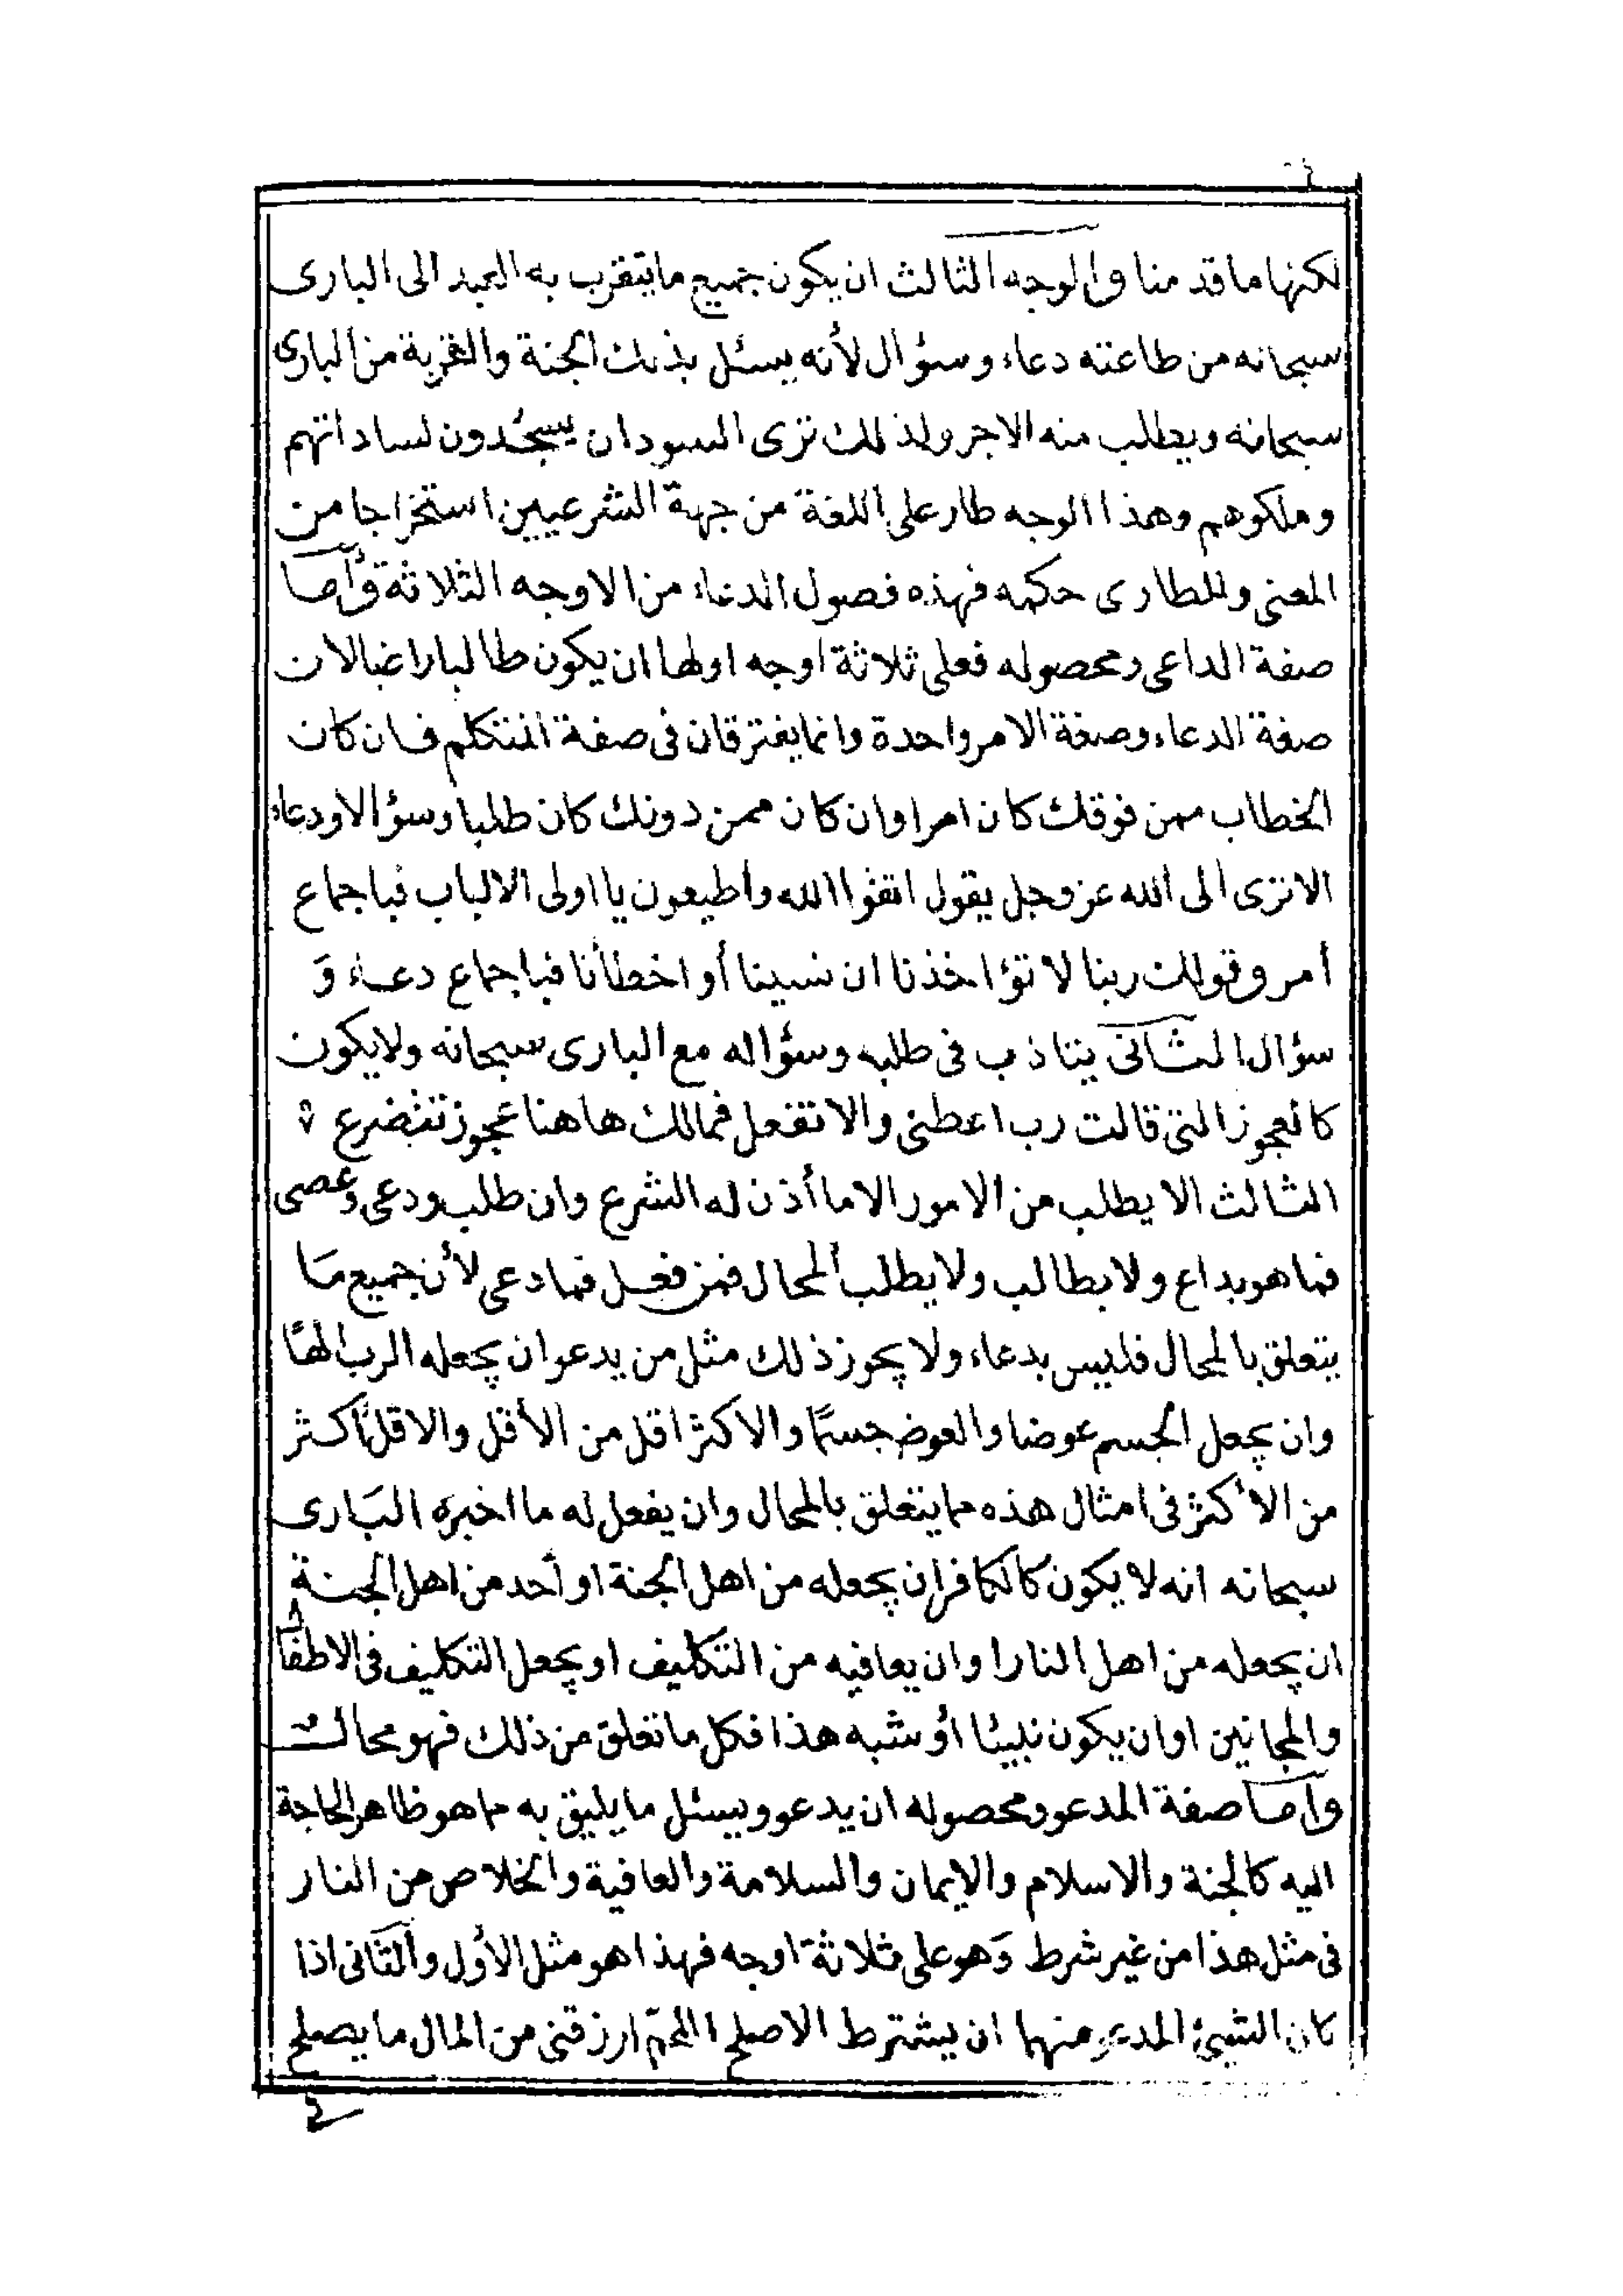 لكنها ما قدمنا والوجه الثالث ان يكون جميع ما يتقرب به العبد الى البارى
سبحانه من طاعته دعاء وسؤال لأنه يسئل بذلك الجنة والقربة من البارى
سبحانه ويطلب منه الاجر ولذلك ترى السودان يسجُدون لساداتهم
وملكوهم وهذا الوجه طار على اللغة من جهة الشرعيين استخراجا من
المعنى وللطارى حكمه فهذه فصول الدعاء من الاوجه الثلاثة وأما
صفة الداعى ومحصوله فعلى ثلاثة اوجه اولها ان يكون طالبا راغبا لان
صفة الدعاء وصفة الامر واحدة وانما يفترقان فى صفة المتكلم فان كان
الخطاب ممن فوقك كان امرا وان كان ممن دونك كان طلبا وسؤالا ودعاء
الا ترى الى الله عز وجل يقول اتقوا الله واطيعون يا اولى الالباب فباجماع
أمر وقولك ربنا لا تؤاخذنا ان نسينا أو اخطأنا فباجماع دعاء وَ
سؤال الثانى يتاذب فى طلبه وسؤاله مع البارى سبحانه ولا يكون
كالعجوز التى قالت رب اعطنى والا تفعل فمالك هاهنا عجوز تضرع
الثالث الا يطلب من الامور الا ما أذن له الشرع وان طلب ودعى وعصى
فما هو بداع ولا بطالب ولا يطلب المحال فمن فعل فما دعى لأن جميع مَا
يتعلق بالمحال فليس بدعاء ولا يجوز ذلك مثل من يدعو ان يجعله الرب الهًا
وان يجعل الجسم عوضا والعوض جسمًا والاكثر اقل من الأقل والاقل أكثر
من الأكثر فى امثال هذه مما يتعلق بالمحال وان يفعل له ما اخبره البَارى
سبحانه انه لا يكون كالكافر ان يجعله من اهل الجنة او أحد من اهل الجنة
ان يجعله من اهل النار او ان يعافيه من التكليف او يجعل التكليف فى الاطفا
والمجانين او ان يكون نبيئا أو شبه هذا فكل ما تعلق من ذلك فهو محال
وأما صفة المدعو ومحصوله ان يدعو ويسئل ما يليق به مما هو ظاهر الحاجة
اليه كالجنة والاسلام والايمان والسلامة والعافية والخلاص من النار
فى مثل هذا من غير شرط وَهو على ثلاثة اوجه فهذا هو مثل الأول والثانى اذا
كان الشيئ المدعو منهما ان يشترط الاصلح اللهمّ ارزقنى من المال ما يصلح